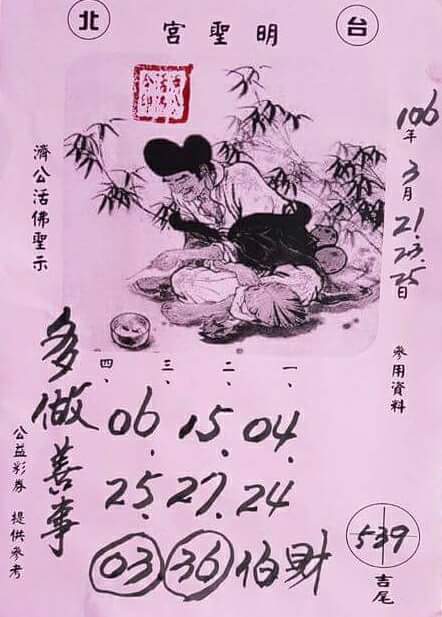 台
明聖宮
北
106年3月21.23.25日
參用資料
濟公活佛聖示
四、 三、 二、 一、
06. 15. 04.
25. 27. 24
03. 36 伯財
多做善事
公益彩券 提供參考
539
吉尾